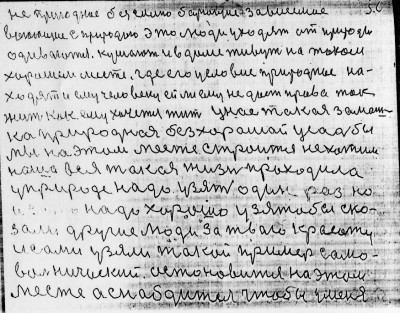 56
не природные безумно богатые зависимые
с природою это люди уходят от природы
одеваются. кушают и в доме живут на таком
хорошем месте, где его условие природные на-
ходят и ему человеку ей мему не дает права так
жить как ему хочется жить у нас такая замаш-
ка природная без хорошай усадбы
мы на этом месте строится не хотим
наша вся такая жизн проходила
у природе надо. узят один раз но
надо хорошо узятобы ско-
зали другие люди за тваю красоту
и сами узяли такой пример само-
волнический. остановится на этом
месте а снабдится чтобы у меня